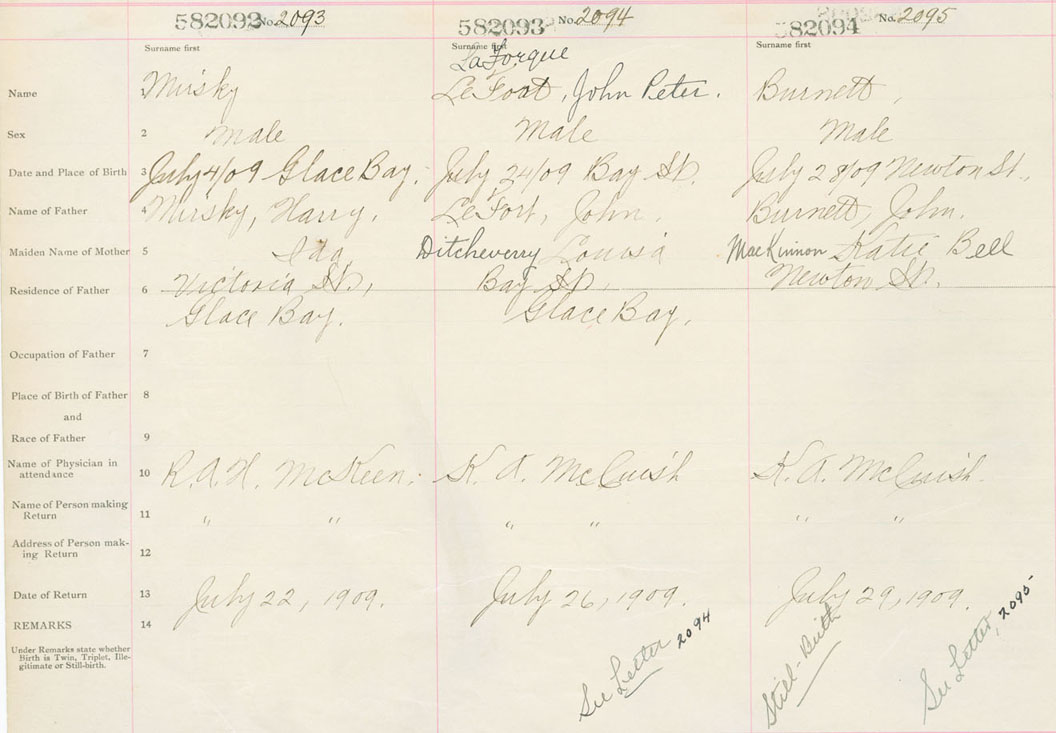 582092 No. 2093 582093 No. 2094 582094 No. 2095
Surname first Surname first Surname first
LaForgue
Name 1 Mirsky LeFort, John Peter. Burnett,
Sex 2 Male Male Male
Date and Place of Birth 3 July 4/09 Glace Bay. July 24/09 Bay St. July 28/09 Newton St.
Name of Father 4 Mirsky, Harry. LeFort, John. Burnett, John.
Maiden Name of Mother 5 Ida Ditcheverry Louisa MacKinnon Katie Bell
Residence of Father 6 Victoria St., Bay St., Newton St.
Glace Bay. Glace Bay.
Occupation of Father 7
Place of Birth of Father 8
and
Race of Father 9
Name of Physician in
attendance 10 R. A. H. McKeen. K. A. McCuish K. A. McCuish.
Name of Person making
Return 11 " " " " " "
Address of Person mak-
ing Return 12
Date of Return 13 July 22, 1909. July 26, 1909. July 29, 1909.
REMARKS 14
Under Remarks state whether
Birth is Twin, Triplet, Ille-
gitimate or Still-birth.
See Letter 2094
Still-Birth
See Letter, 2095